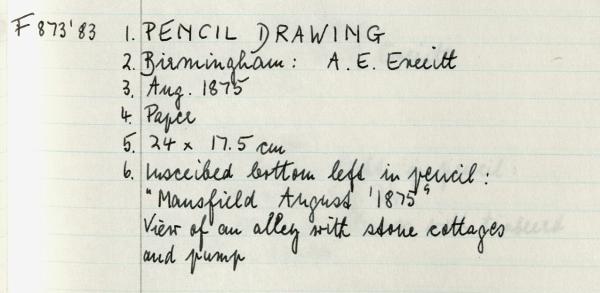 F 873'83 1. PENCIL DRAWING
2. Birmingham: A. E. Everitt
3. Aug. 1875
4. Paper
5. 24 x 17.5 cm
6. Inscribed bottom left in pencil:
"Mansfield August '1875"
View of an alley with stone cottages
and pump